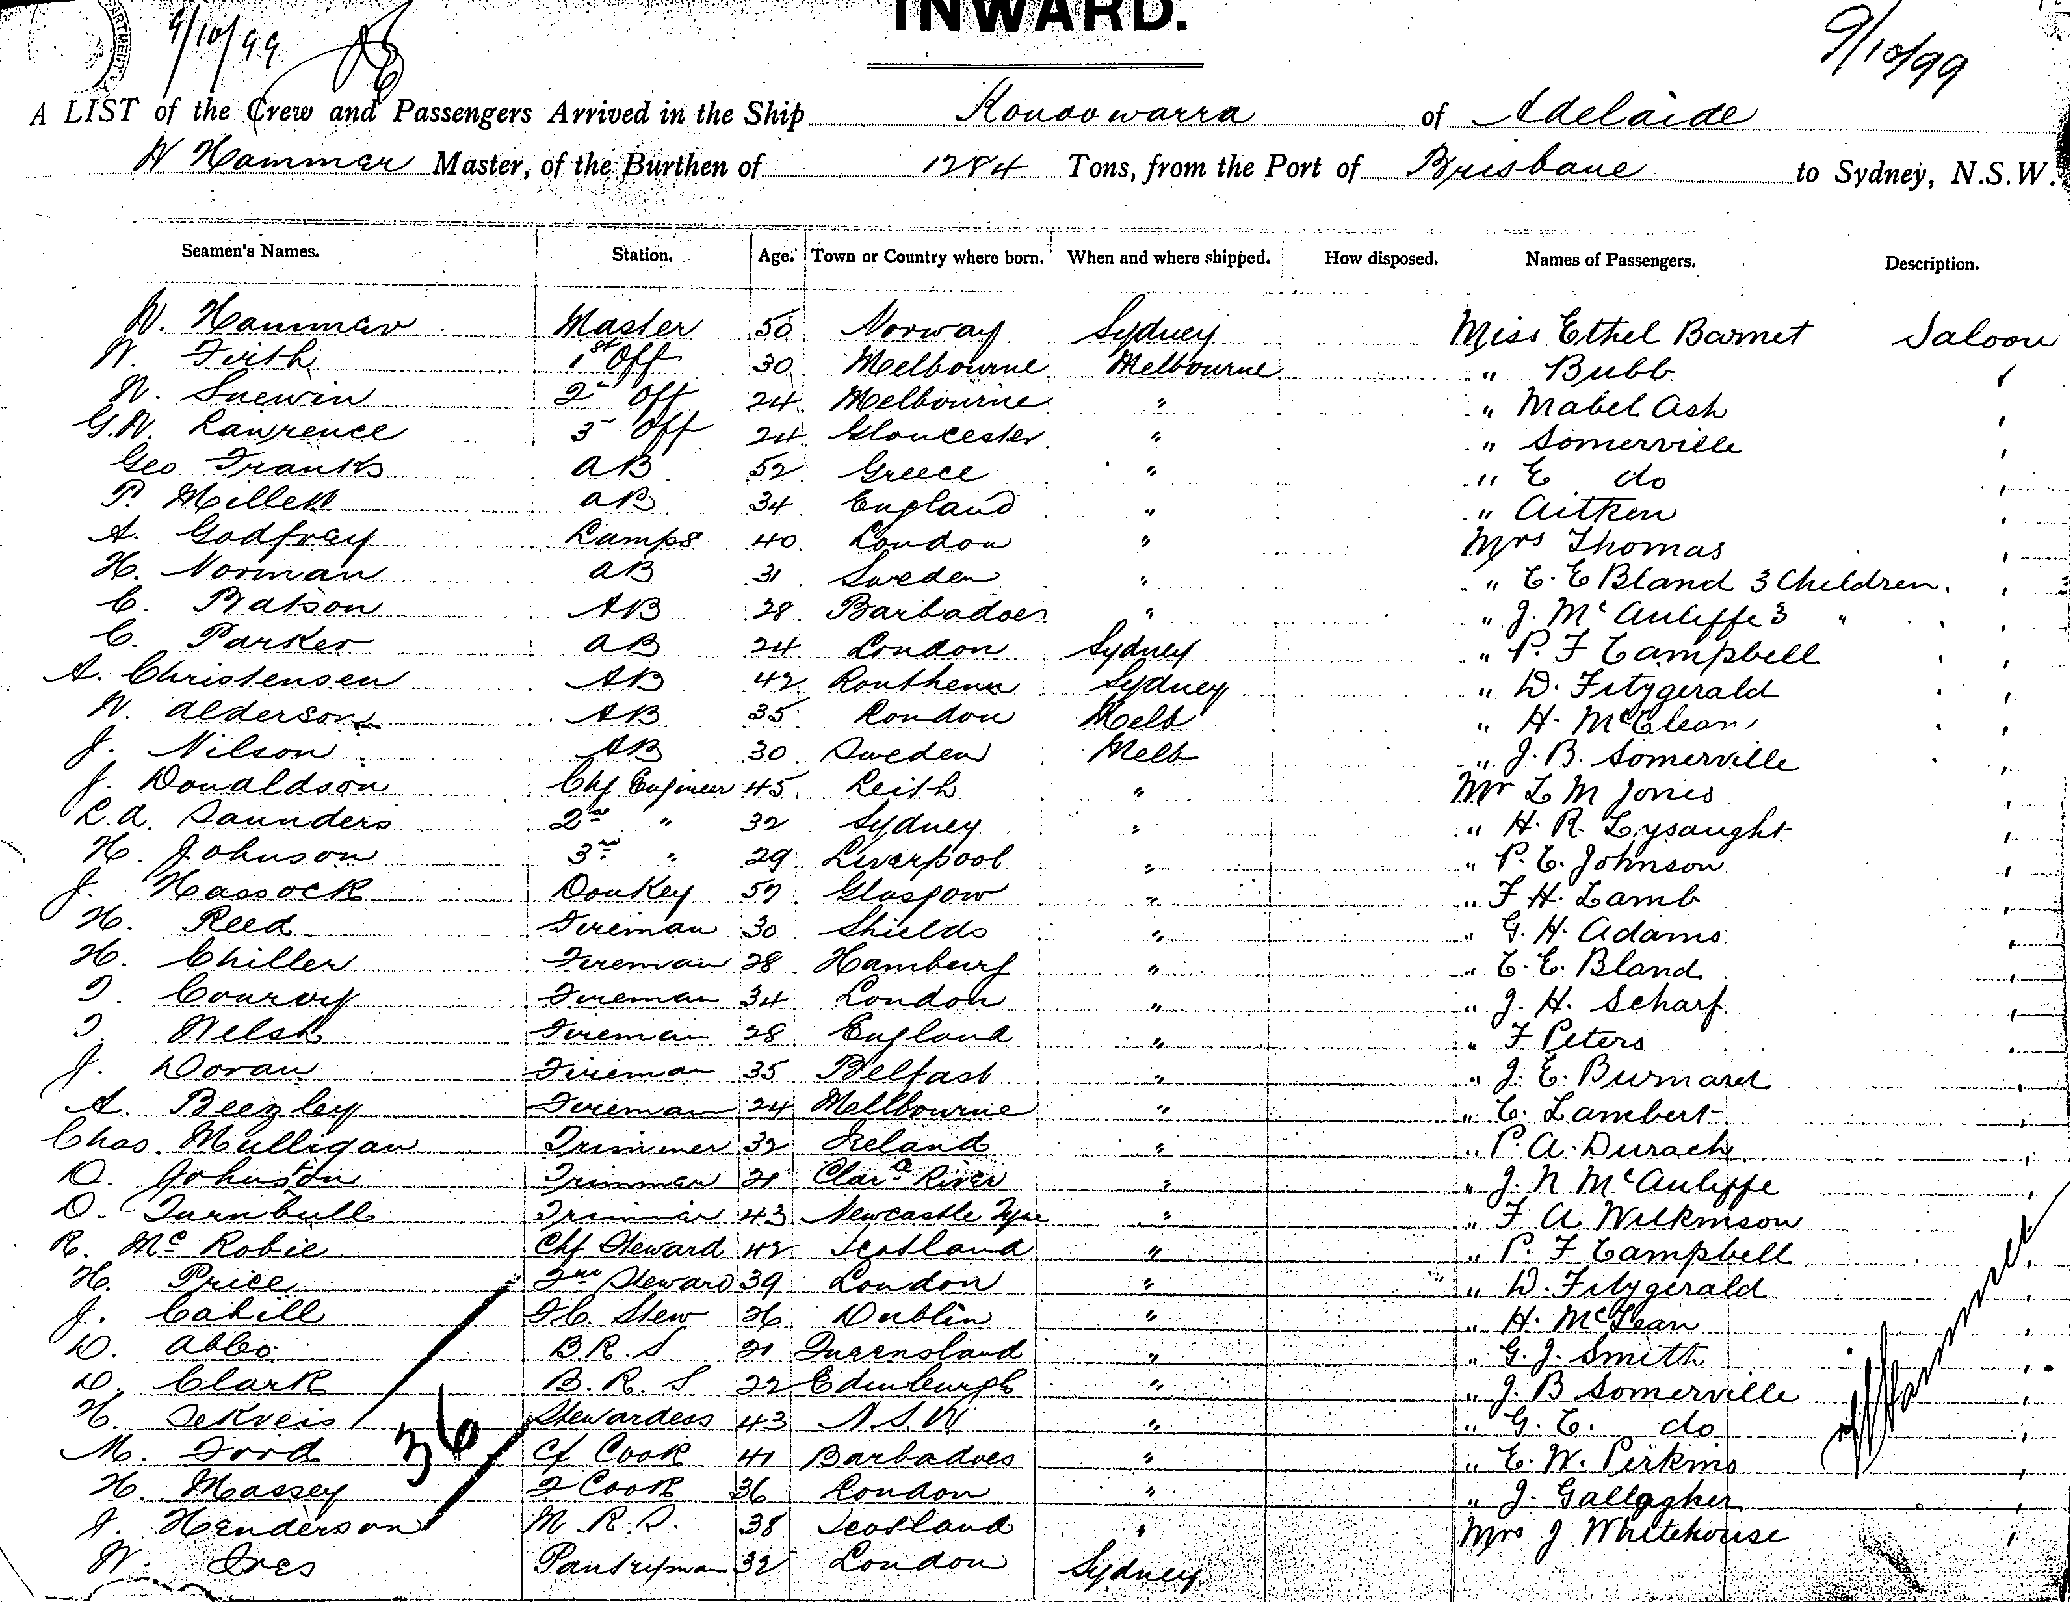 INWARD.
9/10/99
9/10/99
A LIST of the Crew and Passengers Arrived in the Ship Konoowarra of Adelaide
W Hammer Master, of the Burthen of 1284 Tons, from the Port of Brisbane to Sydney, N.S.W.
Seamen's Names. Station. Age. Town or Country where born. When and where shipped. How disposed. Names of Passengers. Description.
W. Hammer Master 50 Norway Sydney Miss Ethel Barnet Saloon
W. Firth 1st Off 30 Melbourne Melbourne " Bubb "
W. Snewin 2nd Off 24 Melbourne " " Mabel Ash "
G.W. Lawrence 3 Off 24 Gloucester " " Somerville "
Geo Franks AB 52 Greece " " E do "
P. Millett AB 34 England " " Aitken "
A. Godfray Lamps 40 London " Mrs Thomas "
H. Norman AB 31 Sweden " " E. E Bland 3 Children. "
C. Batson AB 28 Barbadoes " " J. McAuliffe 3 " "
C. Parker AB 24 London Sydney " P. F Campbell "
A. Christensen AB 42 Sydney " D. Fitzgerald "
W. Alderson AB 35 London Melb " H. McClean "
J. Nilson AB 30 Sweden Melb " J. B. Somerville "
J. Donaldson Chf Engineer 45 Leith " Mr L M Jones "
L.A. Saunders 2nd " 32 Sydney " " H. R. Lysaught "
H. Johnson 3rd " 29 Liverpool " " P. E. Johnson "
J. Hassock Donkey 57 Glasgow " " F H. Lamb "
H. Reed Fireman 30 Shields " " G. H. Adams "
H. Chiller Fireman 28 Hamburg " " E. E. Bland "
T. Conroy Fireman 34 London " " J. H. Scharf "
T. Welsh Fireman 28 England " " F Peters "
J. Doran Fireman 35 Belfast " " J. E. Burnard "
A. Beezley Fireman 24 Mellbourne " " E. Lambert "
Chas. Mulligan Trimmer 32 Ireland " " P. A. Durach "
D. Johnston Trimmer 21 Clara River " " J. N McAuliffe "
D. Turnbull Trimmer 43 Newcastle Tyne " " F A Wilkinson "
R. McRobie Chf Steward 42 Scotland " " P. F Campbell "
H. Price 2nd Steward 39 London " " D. Fitzgerald "
J. Cahill F.C. Stew 26 Dublin " " H. McLean "
D. Abbo B.R.S 21 Queensland " " G. J. Smith "
D. Clark B.R.S 22 Edinburgh " " J. B Somerville "
H. Stewardess 43 N.S.W " " G. E. do "
M. Ford Cf Cook 41 Barbadoes " " E. W. Perkins "
H. Massey 2 Cook 36 London " " J. Gallagher "
J. Henderson M.R.S. 38 Scotland " Mrs J Whitehouse "
W. Ives Pantryman 32 London Sydney
36
W Hammer